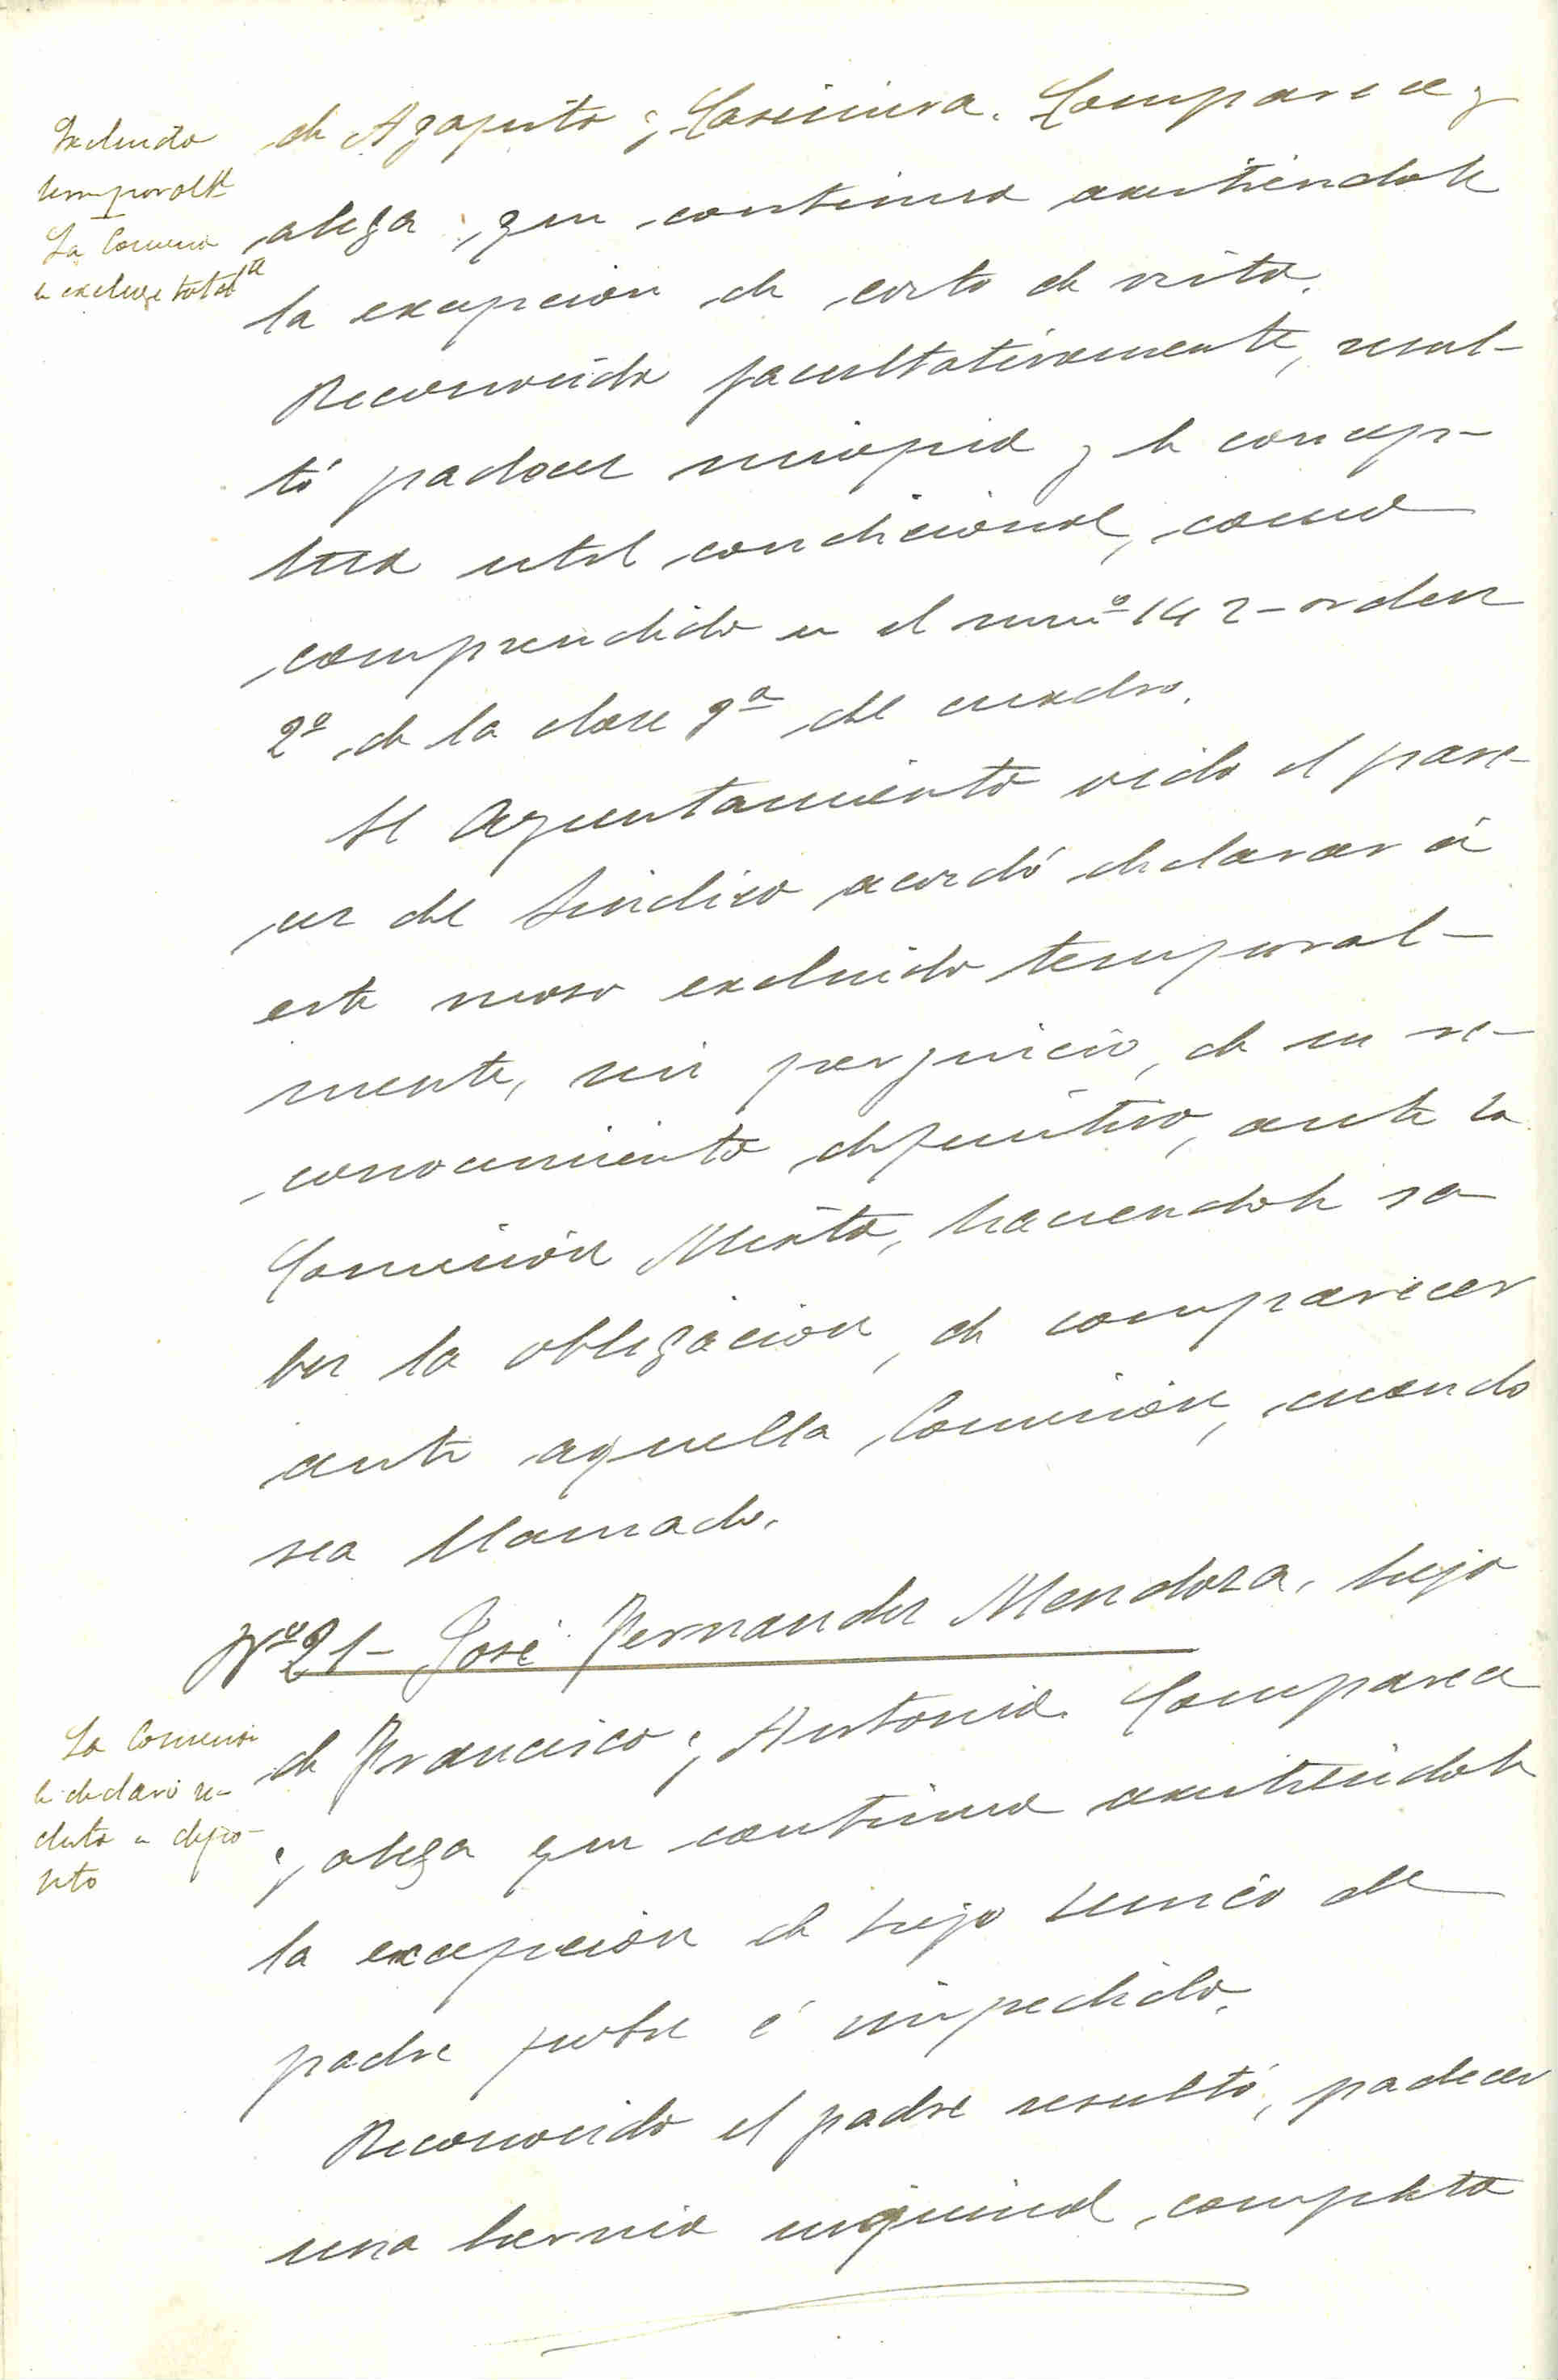 Excluido
temporalte
La Comision
le excluye totalte
de Agapito y Casimira. Comparece y
alega, que continua asistiendole
la excepcion de corto de vista.
Reconocido facultativamente, resul-
tó padecer miopia y le concep-
tua util condicional, como
comprendido en el numº 142 - orden
2º de la clase 9ª del cuadro.
El Ayuntamiento oido el pare-
cer del Sindico acordó declarar á
este mozo excluido temporal-
mente, sin perjuicio, de su re-
conocimiento definitivo, ante la
Comisión Mixta, haciendole sa-
ber la obligacion, de comparecer
ante aquella Comisión, cuando
sea llamado.
Nº 21 - José Fernandez Mendoza, hijo
La Comision
le declaró re-
cluta en depo-
sito
de Francisco y Antonia. Comparece
y alega que continua asistiendole
la excepcion de hijo unico de
padre pobre é impedido.
Reconocido el padre resultó, padecer
una hernia inguinal, completa